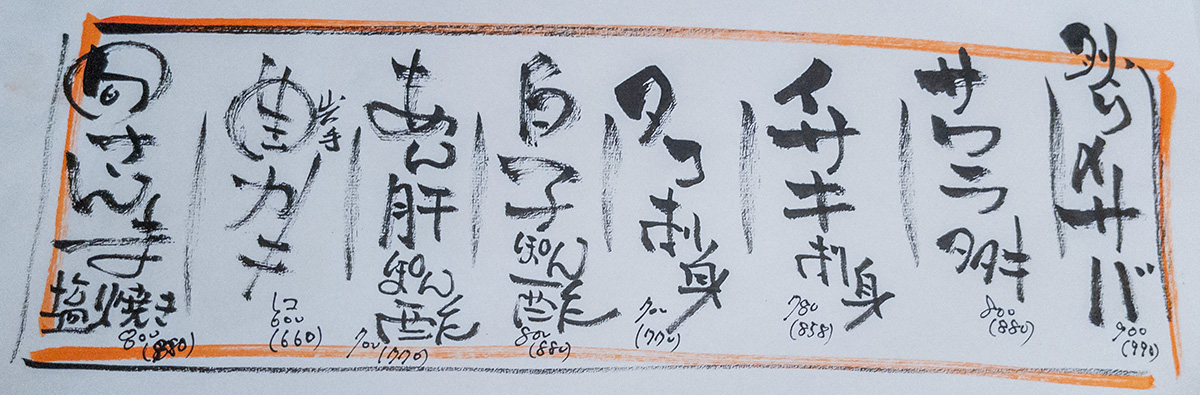 炙りメサバ
900
(990)
サワラタタキ
800
(880)
イサキ刺身
780
(858)
タコ刺身
700
(770)
白子ぽん酢
800
(880)
あん肝ぽん酢
700
(770)
岩手
生カキ
1コ
600
(660)
旬さんま塩焼き
800
(880)